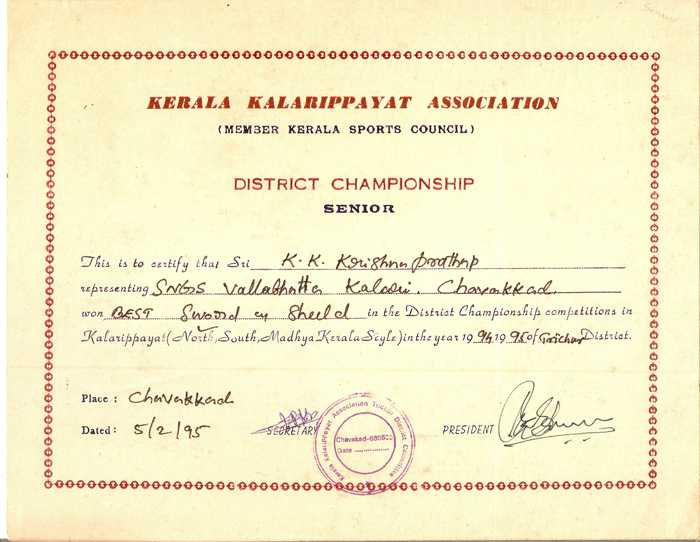 KERALA KALARIPPAYAT ASSOCIATION
(MEMBER KERALA SPORTS COUNCIL)
DISTRICT CHAMPIONSHIP
SENIOR
This is to certify that Sri K.K. Krishna Prathap
representing SNGS Vallabhatta Kalari, Chavakkad
won BEST Sword & Sheeld in the District Championship competitions in
Kalarippayat (North, South, Madhya Kerala Style) in the year 1994 1995 of Trichur District.
Place : Chavakkad
Dated : 5/2/95
SECRETARY
PRESIDENT
Kerala Kalarippayat Association Trichur District Committee
Chavakad-680506
Date ..............